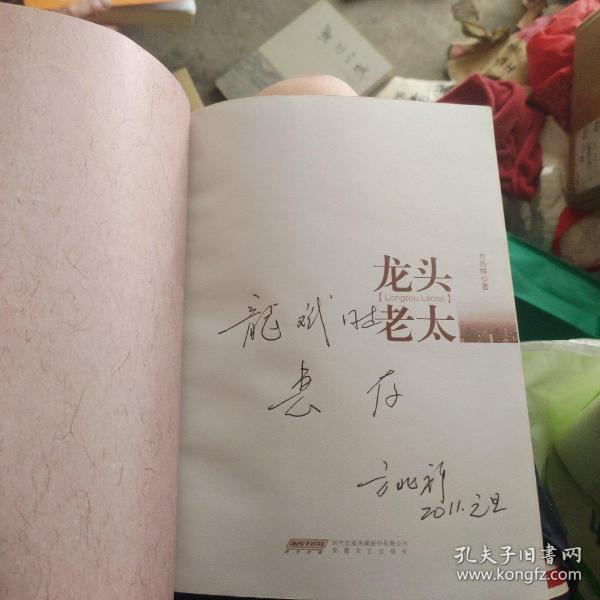 方兆祥◎著
龙头
【Longtou Laotai】
老太
龍斌
惠存
方兆祥
2011.元旦
时代出版传媒股份有限公司
安徽文艺出版社
孔夫子旧书网
www.kongfz.com